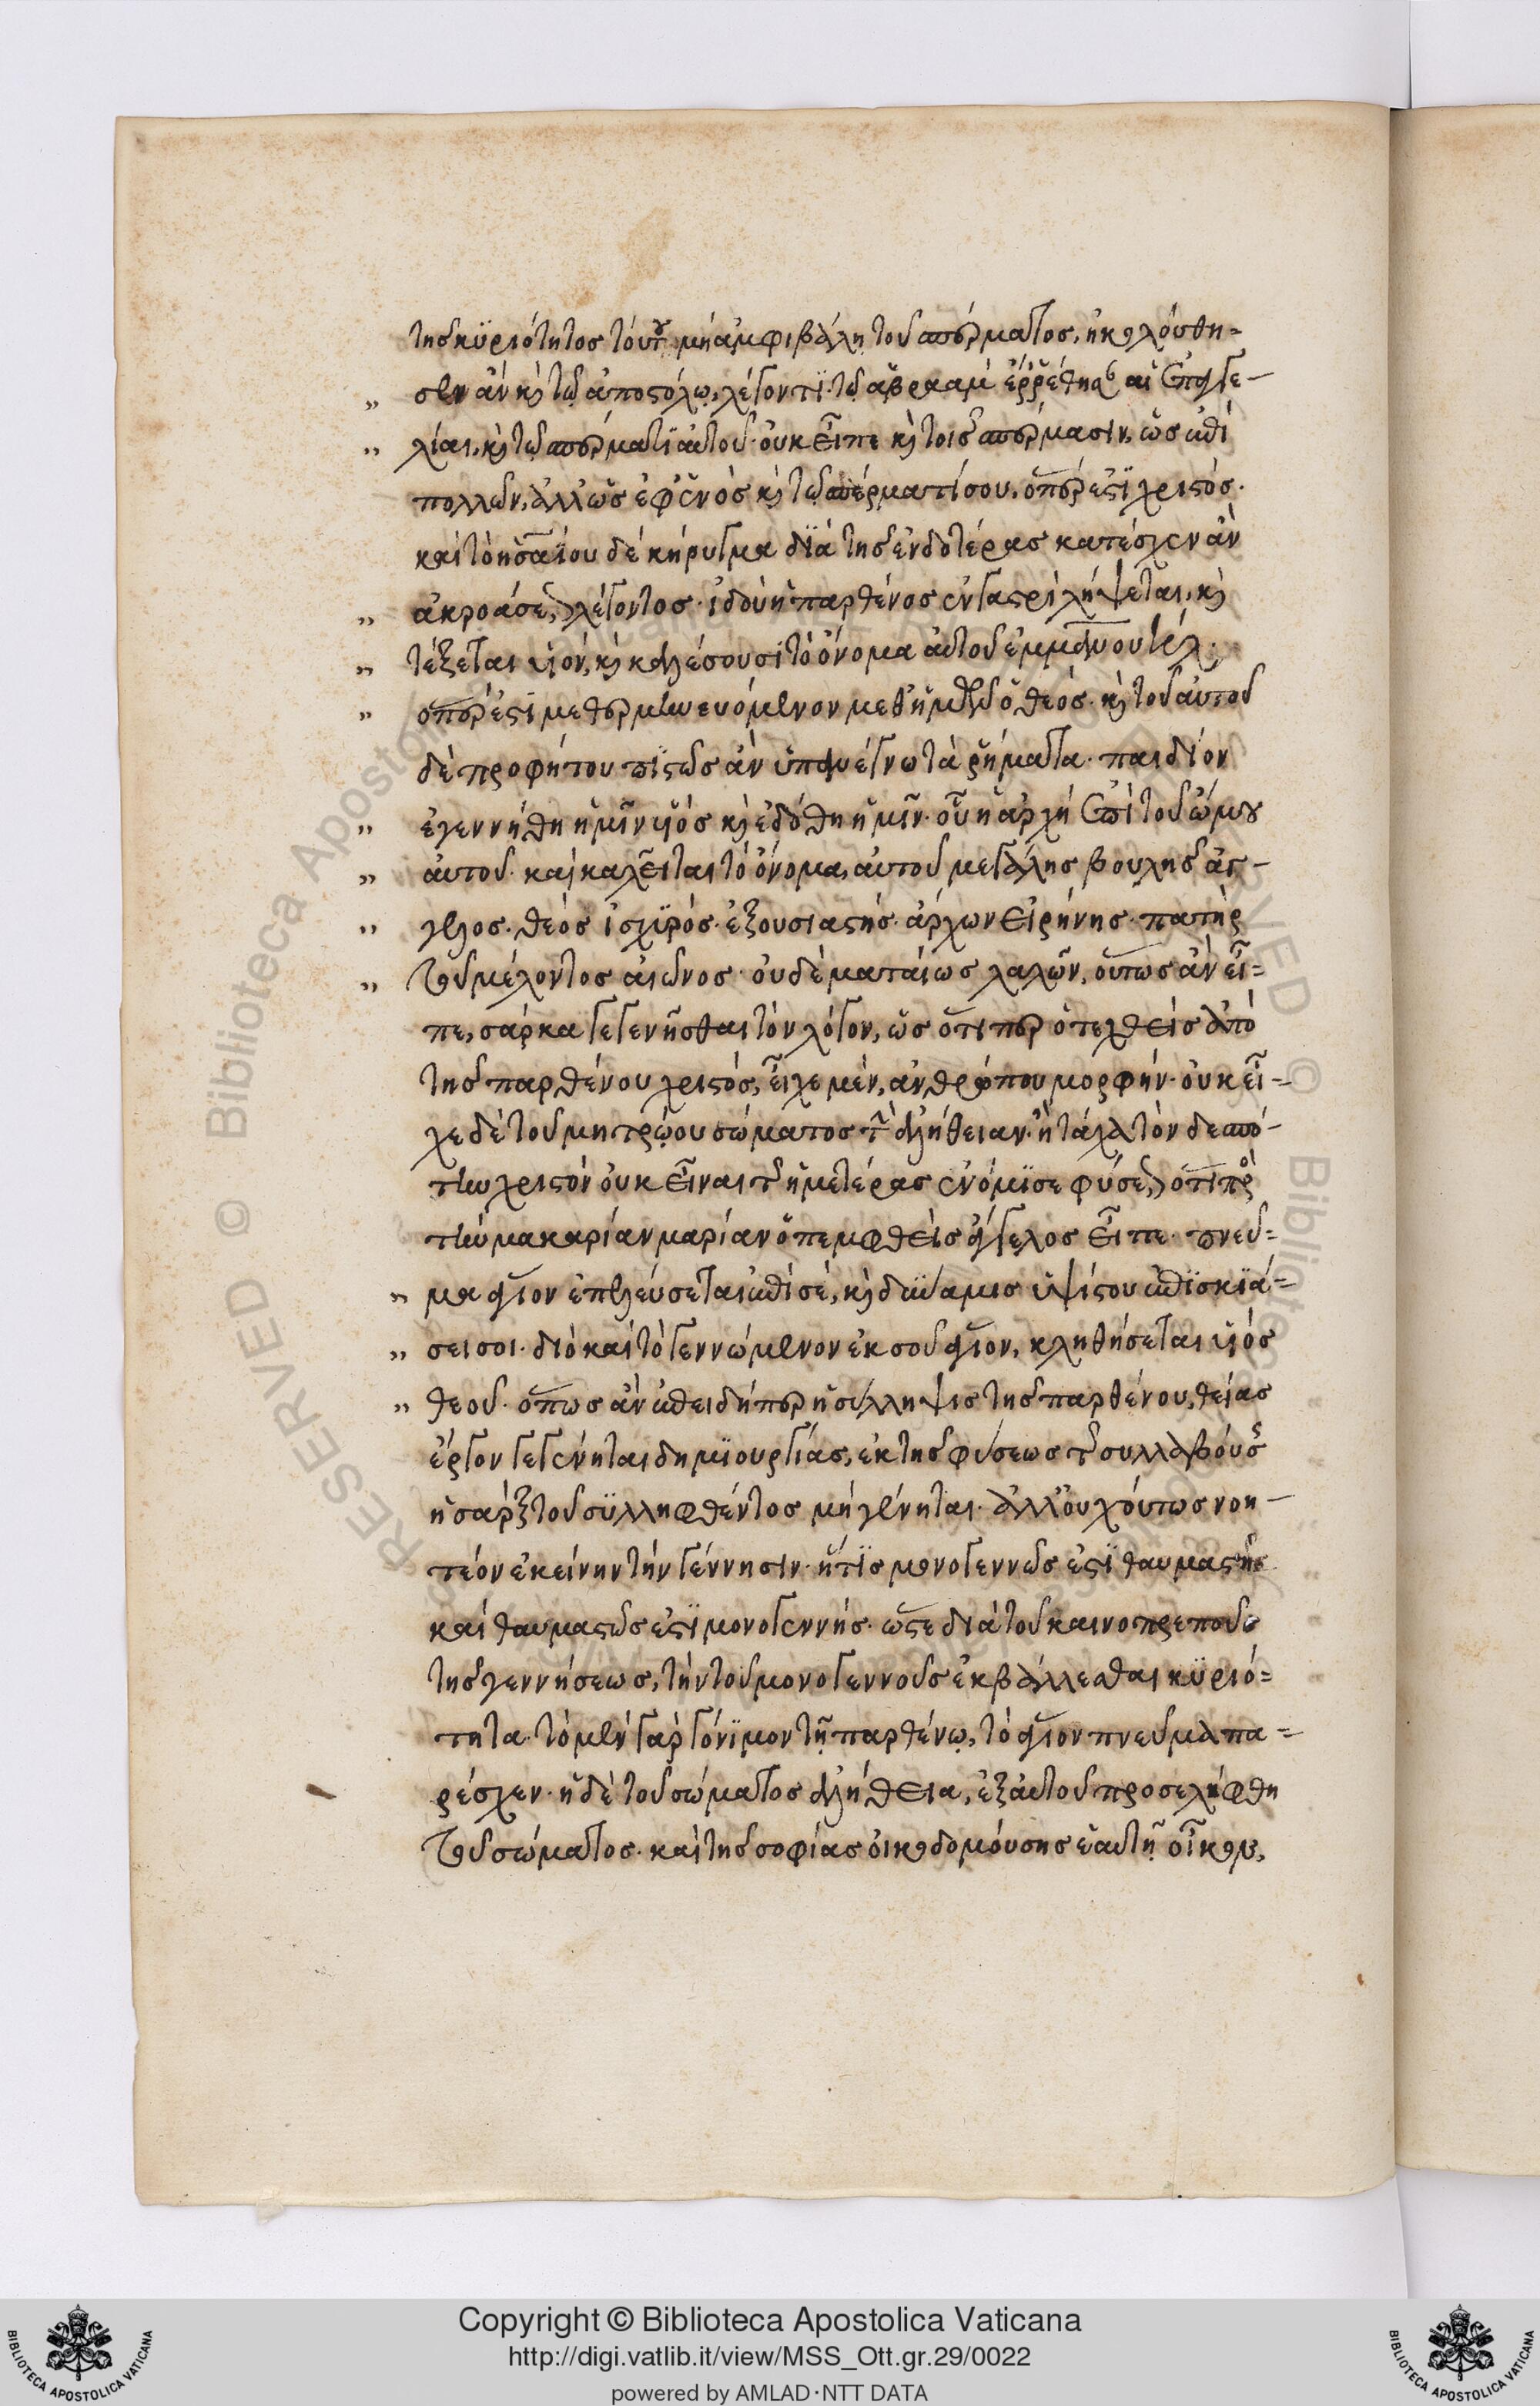 τῆς κϋριότητος τούτου μὴ ἀμφιβάλη τοῦ σπέρματος, ἠκολούθη-
σεν ἂν κὶ τῶ ἀποστόλω, λέγοντϊ· τῶ ἀβραὰμ ἐρρέθησαν αἱ ἐπαγγε-
λίαι, κὶ τῶ σπέρματϊ αὐτοῦ· οὐκ εἶπε κὶ τοῖς σπέρμασιν, ὡς ἐπὶ
πολλῶν, ἀλλ' ὡς ἐφ' ἑνὸς κὶ τῶ σπέρματί σου, ὅπερ ἐστϊ χριστός.
καὶ τὸ ἡσαΐου δὲ κήρυγμα δϊὰ τῆς ἐνδοτέρας κατέσχεν ἂν
ἀκροάσεως, λέγοντος· ἰδοὺ ἡ παρθένος ἐν γαστρὶ λήψεται, κὶ
τέξεται υἱόν, κὶ καλέσουσι τὸ ὄνομα αὐτοῦ ἐμμανουήλ·
ὅπερ ἐστὶ μεθερμηνευόμενον μεθ' ἡμῶν ὁ θεός. κὶ τοῦ αὐτοῦ
δὲ προφήτου πϊστῶς ἂν ὑπανέγνω τὰ ῥήματα· παιδίον
ἐγεννήθη ἡμῖν υἱὸς κὶ ἐδόθη ἡμῖν· οὗ ἡ ἀρχὴ ἐπὶ τοῦ ὤμου
αὐτοῦ. καὶ καλεῖται τὸ ὄνομα, αὐτοῦ μεγάλης βουλῆς ἄγ-
γελος. θεὸς ἰσχϋρός. ἐξουσιαστής. ἄρχων εἰρήνης. πατὴρ
τοῦ μέλοντος αἰῶνος. οὐδὲ ματαίως λαλῶν, οὕτως ἂν εἶ-
πε, σάρκα γεγενῆσθαι τὸν λόγον, ὡς ὅτι περ ὁ τεχθεὶς ἀπὸ
τῆς παρθένου χριστός, εἶχε μέν, ἀνθρώπου μορφήν· οὐκ εἶ-
χε δὲ τοῦ μητρώου σώματος τὴν ἀλήθειαν· ἢ τάχα τὸν δεσπό-
την χριστὸν οὐκ εἶναι τῆς ἡμετέρας ἐνόμϊσε φύσεως, ὅτι πρὸς
τὴν μακαρίαν μαρίαν ὁ πεμφθεὶς ἄγγελος εἶπε· πνεῦ-
μα ἅγιον ἐπελεύσεται ἐπὶ σέ, κὶ δϋναμις ὑψίστου ἐπϊσκϊά-
σει σοι. διὸ καὶ τὸ γεννώμενον ἐκ σοῦ ἅγιον, κληθήσεται υἱὸς
θεοῦ. ὅπως ἂν ἐπειδήπερ ἡ σύλληψις τῆς παρθένου, θείας
ἔργον γεγένηται δημϊουργίας, ἐκ τῆς φύσεως τῆς συλλαβούσης
ἡ σὰρξ τοῦ σϋλληφθέντος μὴ γένηται. ἀλλ' οὐχ οὕτως νοη-
τέον ἐκείνην τὴν γέννησιν. ἥτϊς μονογεννῶς ἐστϊ θαυμαστὴ
καὶ θαυμαστῶς ἐστϊ μονογεννής. ὥστε διὰ τοῦ καινοπρεποῦς
τῆς γεννήσεως, τὴν τοῦ μονογεννοῦς ἐκβάλλεσθαι κϋριό-
τητα. τὸ μὲν γὰρ γόνϊμον τῇ παρθένῳ, τὸ ἅγιον πνεῦμα πα-
ρέσχεν. ἡ δὲ τοῦ σώματος ἀλήθεια, ἐξ αὐτοῦ προσελήφθη
τοῦ σώματος. καὶ τῆς σοφίας οἰκοδομούσης ἑαυτῇ οἶκον,
Copyright © Biblioteca Apostolica Vaticana
http://digi.vatlib.it/view/MSS_Ott.gr.29/0022
powered by AMLAD·NTT DATA